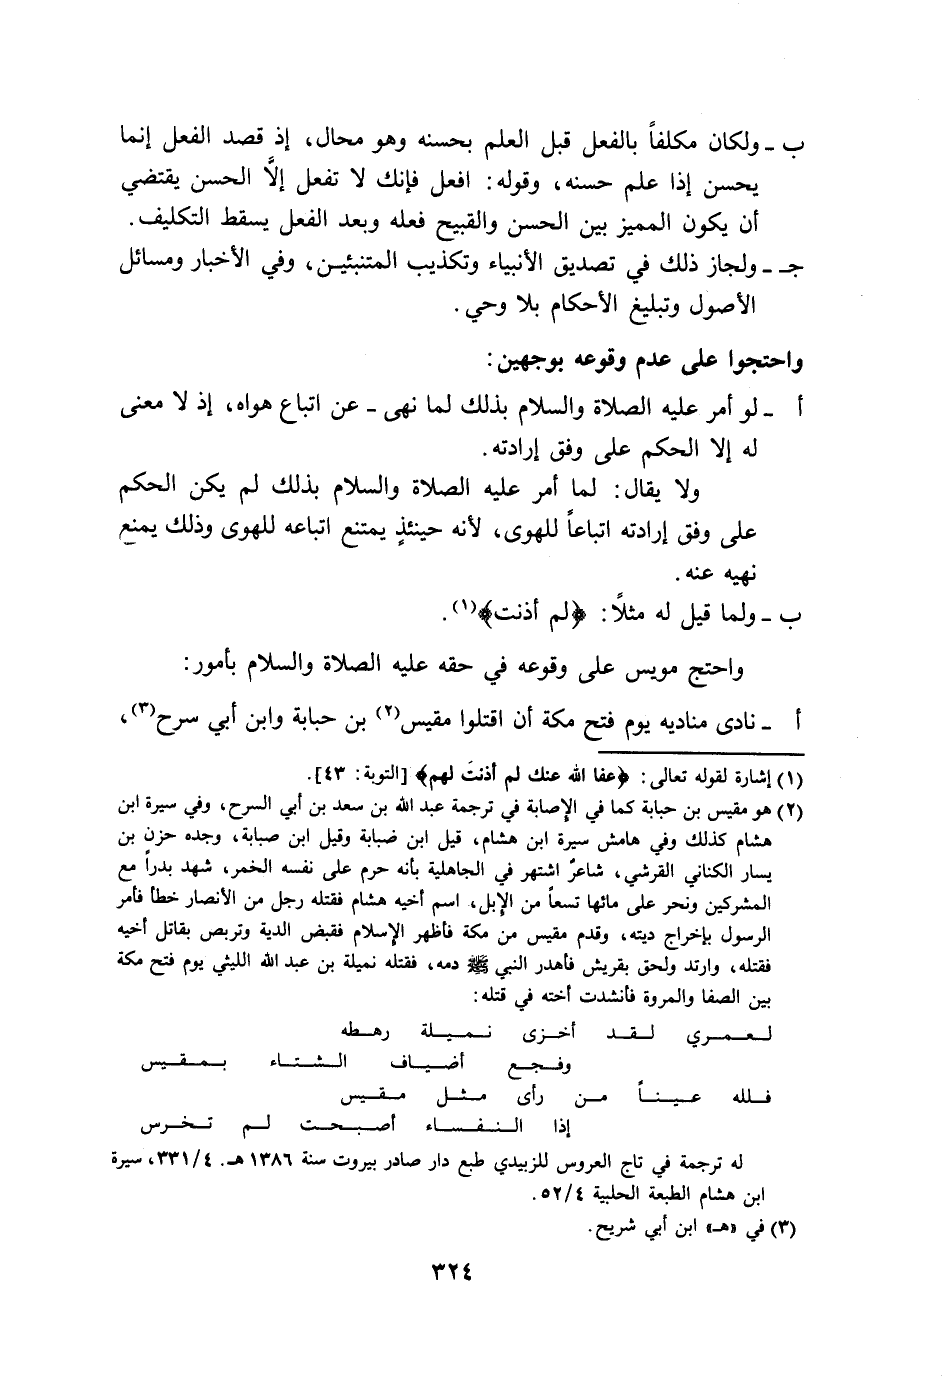 ب ـ ولكان مكلفاً بالفعل قبل العلم بحسنه وهو محال، إذ قصد الفعل إنما
يحسن إذا علم حسنه، وقوله: افعل فإنك لا تفعل إلاَّ الحسن يقتضي
أن يكون المميز بين الحسن والقبيح فعله وبعد الفعل يسقط التكليف.
جـ ـ ولجاز ذلك في تصديق الأنبياء وتكذيب المتنبئين، وفي الأخبار ومسائل
الأصول وتبليغ الأحكام بلا وحي.
واحتجوا على عدم وقوعه بوجهين:
أ ـ لو أمر عليه الصلاة والسلام بذلك لما نهى ـ عن اتباع هواه، إذ لا معنى
له إلا الحكم على وفق إرادته.
ولا يقال: لما أمر عليه الصلاة والسلام بذلك لم يكن الحكم
على وفق إرادته اتباعاً للهوى، لأنه حينئذٍ يمتنع اتباعه للهوى وذلك يمنع
نهيه عنه.
ب ـ ولما قيل له مثلاً: ﴿لم أذنت﴾(١).
واحتج مويس على وقوعه في حقه عليه الصلاة والسلام بأمور:
أ ـ نادى مناديه يوم فتح مكة أن اقتلوا مقيس(٢) بن حبابة وابن أبي سرح(٣)،
(١) إشارة لقوله تعالى: ﴿عفا الله عنك لم أذنتَ لهم﴾ [التوبة: ٤٣].
(٢) هو مقيس بن حبابة كما في الإصابة في ترجمة عبد الله بن سعد بن أبي السرح، وفي سيرة ابن
هشام كذلك وفي هامش سيرة ابن هشام، قيل ابن ضبابة وقيل ابن صبابة، وجده حزن بن
يسار الكناني القرشي، شاعرٌ اشتهر في الجاهلية بأنه حرم على نفسه الخمر، شهد بدراً مع
المشركين ونحر على مائها تسعاً من الإبل، اسم أخيه هشام فقتله رجل من الأنصار خطأ فأمر
الرسول بإخراج ديته، وقدم مقيس من مكة فأظهر الإسلام فقبض الدية وتربص بقاتل أخيه
فقتله، وارتد ولحق بقريش فأهدر النبي ﷺ دمه، فقتله نميلة بن عبد الله الليثي يوم فتح مكة
بين الصفا والمروة فأنشدت أخته في قتله:
لـعـمـري لـقـد أخـزى نـمـيـلة رهـطه
وفـجـع أضـيـاف الـشـتـاء بـمـقـيـس
فـلله عـيـنـاً مـن رأى مـثـل مـقـيس
إذا الـنـفـسـاء أصـبـحـت لـم تـخـرس
له ترجمة في تاج العروس للزبيدي طبع دار صادر بيروت سنة ١٣٨٦ هـ. ٣٣١/٤، سيرة
ابن هشام الطبعة الحلبية ٥٢/٤.
(٣) في «هـ» ابن أبي شريح.
٣٢٤